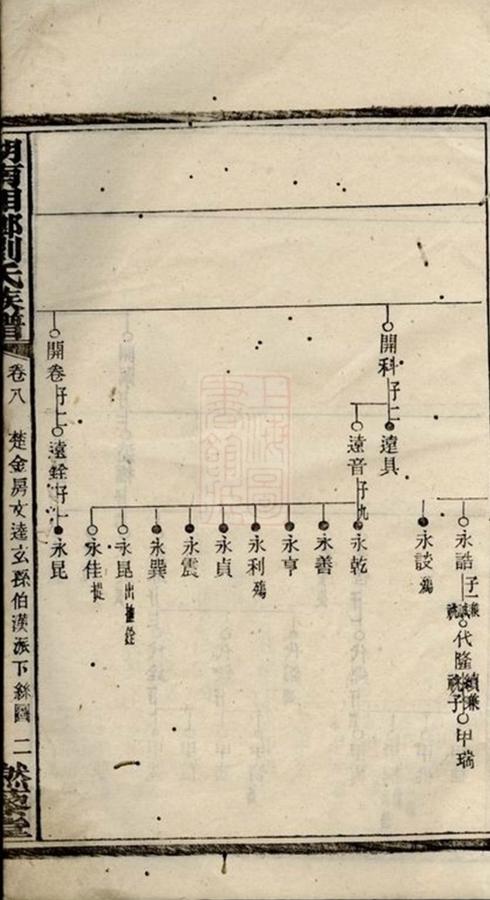 永誥
子一
代隆
甲瑞
永談
殤
開科
子二
遠具
遠音
子九
永乾
永善
永亨
永利
殤
永貞
永震
永巽
永昆
出繼銓
永佳
開卷
子二
遠銓
子一
永昆
劉氏族譜
卷八
楚金房文達玄孫伯漢派下絲圖
二